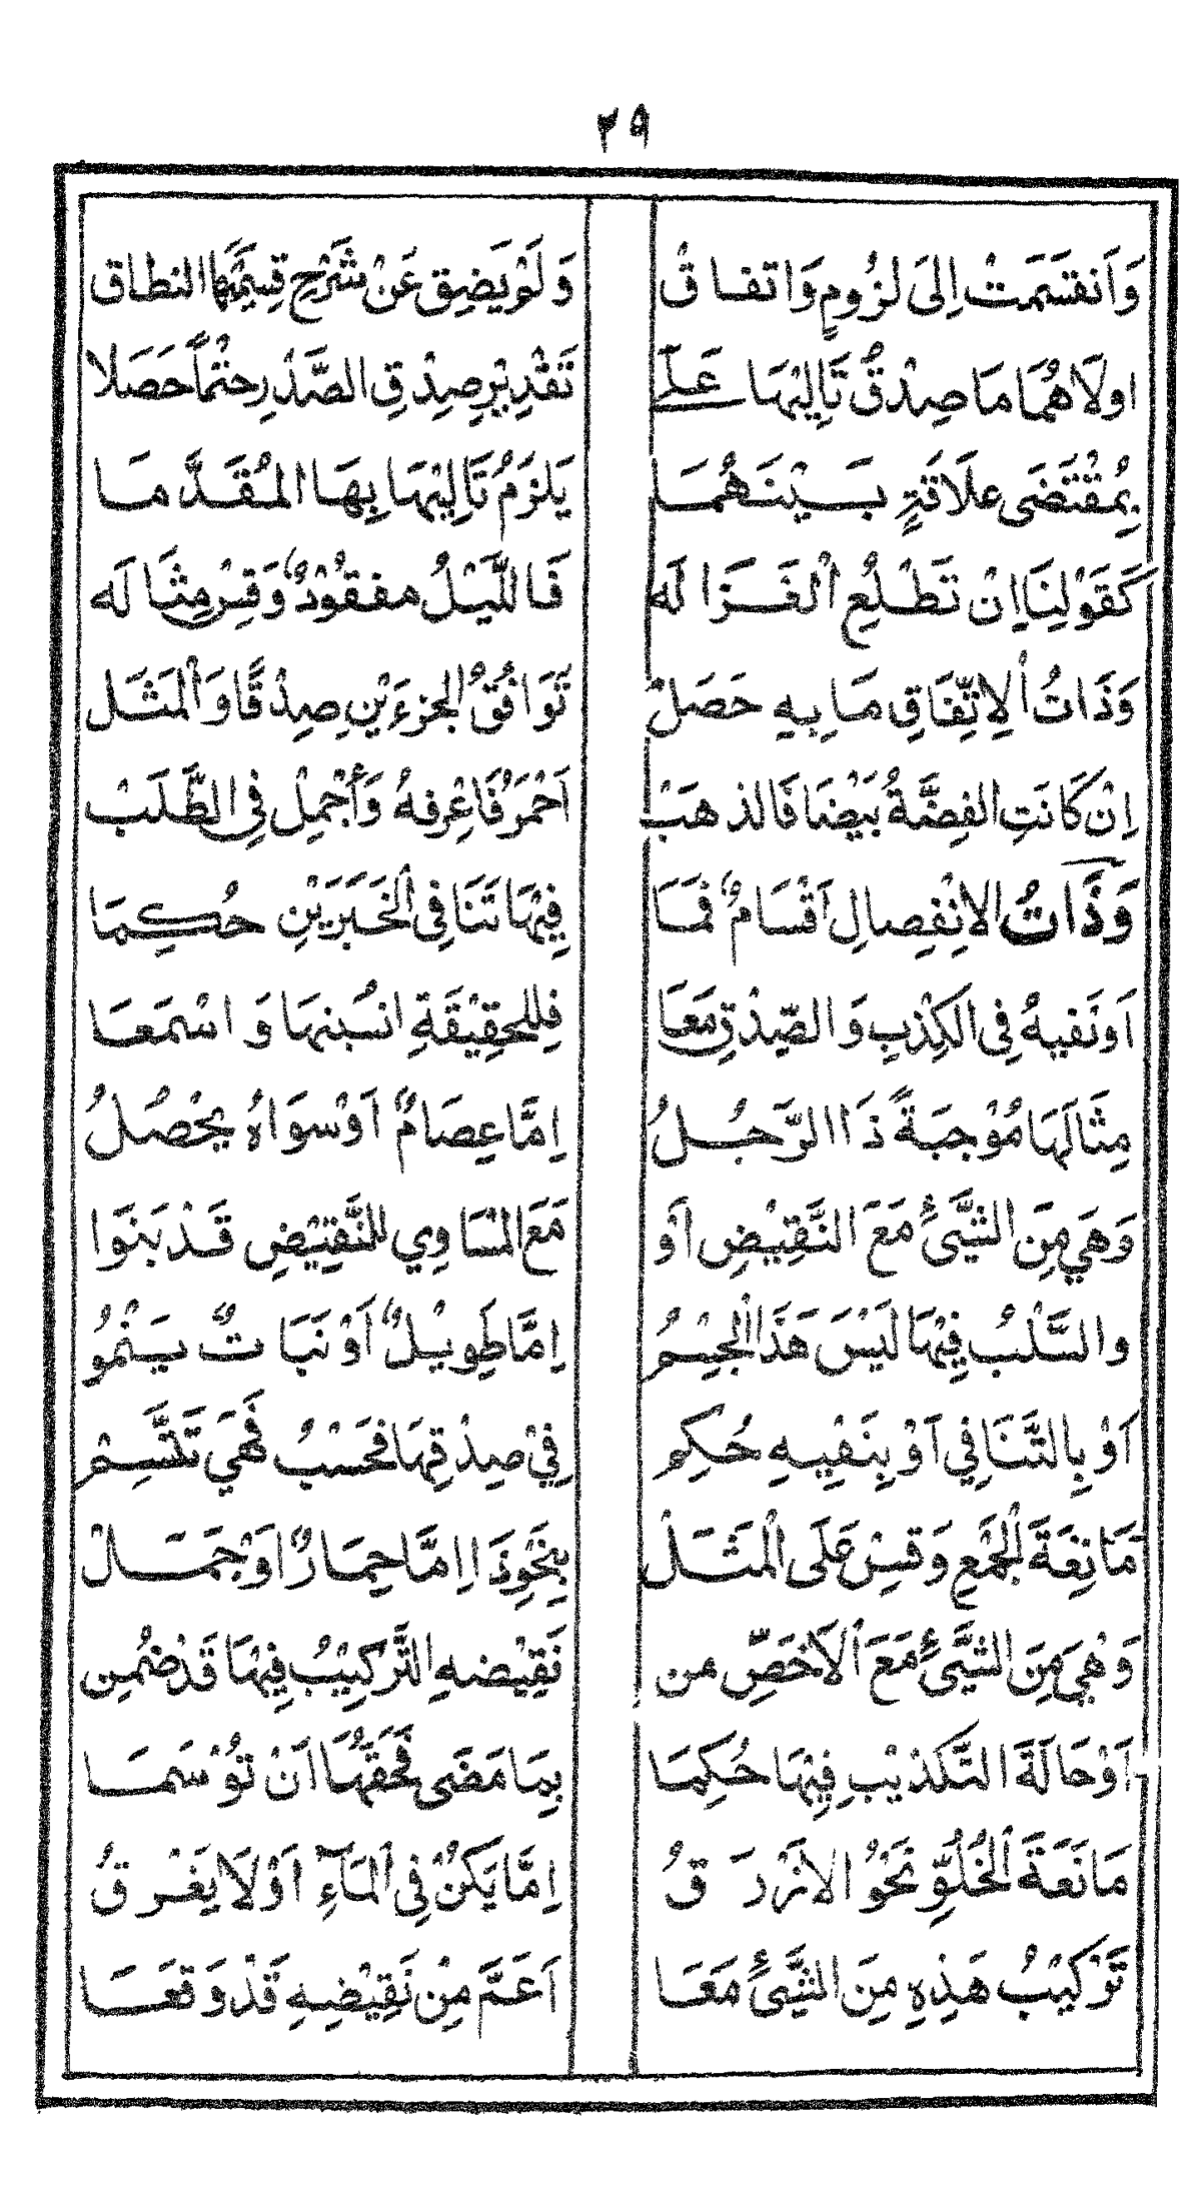 ٢٩
وَاَنقسَمَتْ اِلىَ لزُومٍ وَاتفاقْ وَلَمْ يَضِق عَنْ شَرْحِ قِسْمَيْهَا النطاق
اولَاهُمَا مَا صِدْقُ تَالِيْهَا عَلَى تَقْدِيْرِ صِدْقِ الصَّدْرِ حتْماً حَصَلا
بِمُقْتَضَى علَاقَةٍ بَيْنَهُمَا يَلزَمُ تَالِيْهَا بِهَا المُقَدَّمَا
كَقَوْلِنَا اِنْ تَطْلُعِ الْغَزَالَه فَاللَّيْلُ مفقُوْدٌ وَقِسْ مِثَالَه
وَذَاتُ الْاِتِّفَاقِ مَا بِهِ حَصَلْ تَوَافُقُ الجزءَيْنِ صِدْقًا وَالْمَثَل
اِنْ كَانَتِ الفِضَّةُ بَيْضَا فَالذهَبْ اَحْمَرُ فَاعْرِفهُ وَأَجْمِلْ فِى الطَّلَبْ
وَذَاتُ الاِنْفِصالِ اَقْسَامٌ فَمَا فِيْهَا تَنَافِى الْخَبَرَيْنِ حُكِمَا
اَو نَفيهُ فِى الكِذْبِ وَالصِّدْقِ مَعَا فِللحقِيْقَةِ انسُبنهَا وَاسْمَعَا
مِثَالَهَا مُوْجبَةً ذَا الرَّجُلُ اِمَّا عِصَامٌ اَوْ سوَاهُ يَحْصُلُ
وَهَي مِنَ الشَّيْئِ مَعَ النَّقِيْضِ اَوْ مَعَ المسَاوِي للنَّقِيْضِ قَدْ بَنَوا
والسَّلْبُ فِيْهَا لَيْسَ هَذَا الْجِيْمُ اِمَّا طَوِيْلٌ اَوْ نَبَاتٌ يَنْمُو
اَوْ بِالتَّنَافِي اَوْ بِنَفْيِهِ حُكِم فِيْ صِدْقِهَا فحَسْبُ فَهَي تَتَّسِمْ
مَانِعَةَ الْجَمْعِ وَقِسْ عَلَى الْمَثَلْ بِنَحْوِ ذَا اِمَّا حِمَارٌ اَوْ جَمَلْ
وَهْيَ مِنَ الشَّيْئِ مَعَ الْاَخَصِّ من نَقِيْضهِ التَّركِيْبُ فِيْهَا قَدْ ضُمِن
اَوْ حَالَةَ التَّكذيْبِ فِيْهَا حُكِمَا بِمَا مَضَى فَحَقُّهَا اَنْ تُوْسَمَا
مَانَعَةَ الْخُلُوِّ نَحْوُ الازْرَقُ اِمَّا يَكُنْ فِى الْمَاءِ اَوْ لَا يَغْرَقُ
تَرْكِيْبُ هَذِهِ مِنَ الشَّيْئِ مَعَا اَعَمَّ مِنْ نَقِيْضِهِ قَدْ وَقَعَا